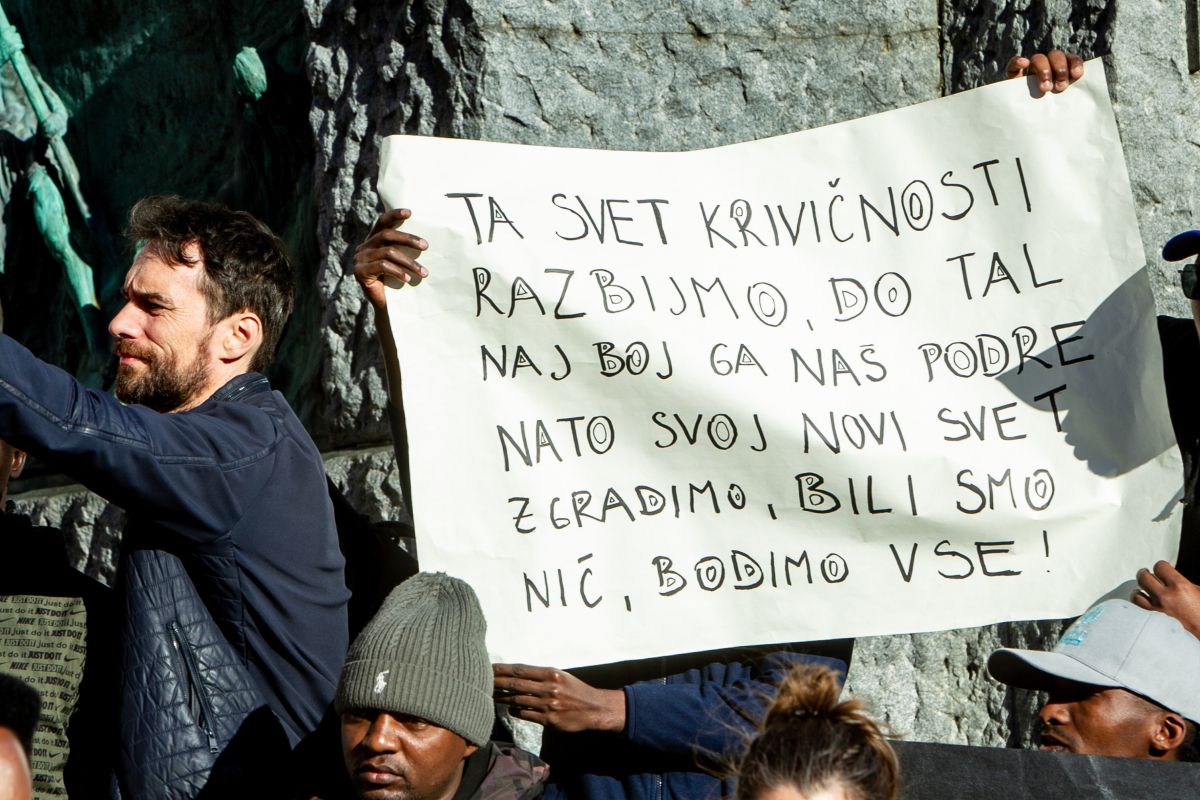 TA SVET KRIVIČNOSTI
RAZBIJMO, DO TAL
NAJ BOJ GA NAŠ PODRE
NATO SVOJ NOVI SVET
ZGRADIMO, BILI SMO
NIČ, BODIMO VSE!
just do it JUST DO IT
NIKE JUST DO IT just do it